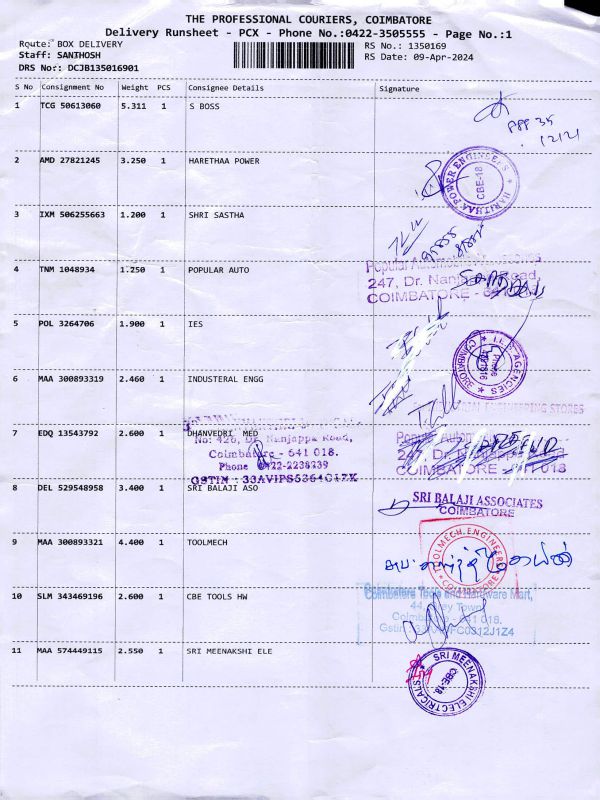 THE PROFESSIONAL COURIERS, COIMBATORE
Delivery Runsheet - PCX - Phone No.:0422-3505555 - Page No.:1
Route: BOX DELIVERY
RS No.: 1350169
Staff: SANTHOSH
RS Date: 09-Apr-2024
DRS No: DCJB135016901
S No Consignment No Weight PCS Consignee Details Signature
1 TCG 50613060 5.311 1 S BOSS
2 AMD 27821245 3.250 1 HARETHAA POWER
HARITHAA POWER ENGINEERS
CBE-18
3 IXM 506255663 1.200 1 SHRI SASTHA
4 TNM 1048934 1.250 1 POPULAR AUTO
Popular
247, Dr. Nanjappa Road,
COIMBATORE
5 POL 3264706 1.900 1 IES
I.E.S. AGENCIES
6 MAA 300893319 2.460 1 INDUSTERAL ENGG
ENGINEERING STORES
7 EDQ 13543792 2.600 1 DHANVEDRI MED
No: 426, Dr. Nanjappa Road,
Coimbatore - 641 018.
Phone 0422-2238239
Popular
247, Dr.
COIMBATORE - 641 018
8 DEL 529548958 3.400 1 SRI BALAJI ASO
SRI BALAJI ASSOCIATES
COIMBATORE
9 MAA 300893321 4.400 1 TOOLMECH
TOOLMECH ENGINEERS
10 SLM 343469196 2.600 1 CBE TOOLS HW
Coimbatore Tools and Hardware Mart,
11 MAA 574449115 2.550 1 SRI MEENAKSHI ELE
SRI MEENAKSHI ELECTRICALS
CBE-18.